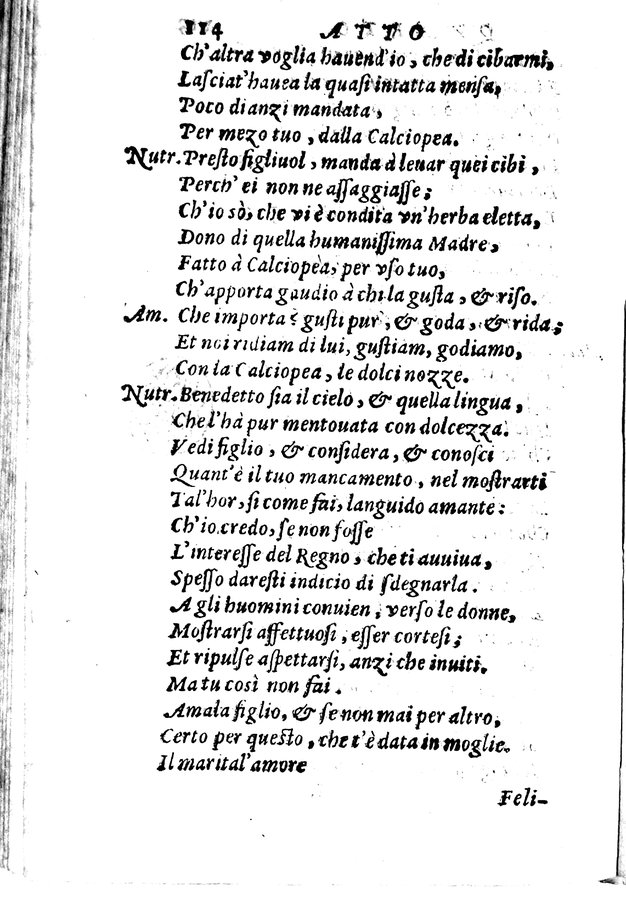 114 ATTO
Ch'altra voglia hauend'io, che di cibarmi,
Laſciat'hauea la quaſi intatta menſa,
Poco dianzi mandata,
Per mezo tuo, dalla Calciopea.
Nutr. Preſto figliuol, manda à leuar quei cibi,
Perch' ei non ne aſſaggiaſſe;
Ch'io sò, che vi è condita vn'herba eletta,
Dono di quella humaniſſima Madre,
Fatto à Calciopea, per vſo tuo,
Ch'apporta gaudio à chi la guſta, & riſo.
Am. Che importa? guſti pur, & goda, & rida;
Et noi ridiam di lui, guſtiam, godiamo,
Con la Calciopea, le dolci nozze.
Nutr. Benedetto ſia il cielo, & quella lingua,
Che l'hà pur mentouata con dolcezza.
Vedi figlio, & conſidera, & conoſci
Quant'è il tuo mancamento, nel moſtrarti
Tal'hor, ſi come fai, languido amante:
Ch'io credo, ſe non foſſe
L'intereſſe del Regno, che ti auuiua,
Speſſo dareſti indicio di ſdegnarla.
A gli huomini conuien, verſo le donne,
Moſtrarſi affettuoſi, eſſer corteſi;
Et ripulſe aſpettarſi, anzi che inuiti.
Ma tu così non fai.
Amala figlio, & ſe non mai per altro,
Certo per queſto, che t'è data in moglie.
Il marital'amore
Feli-